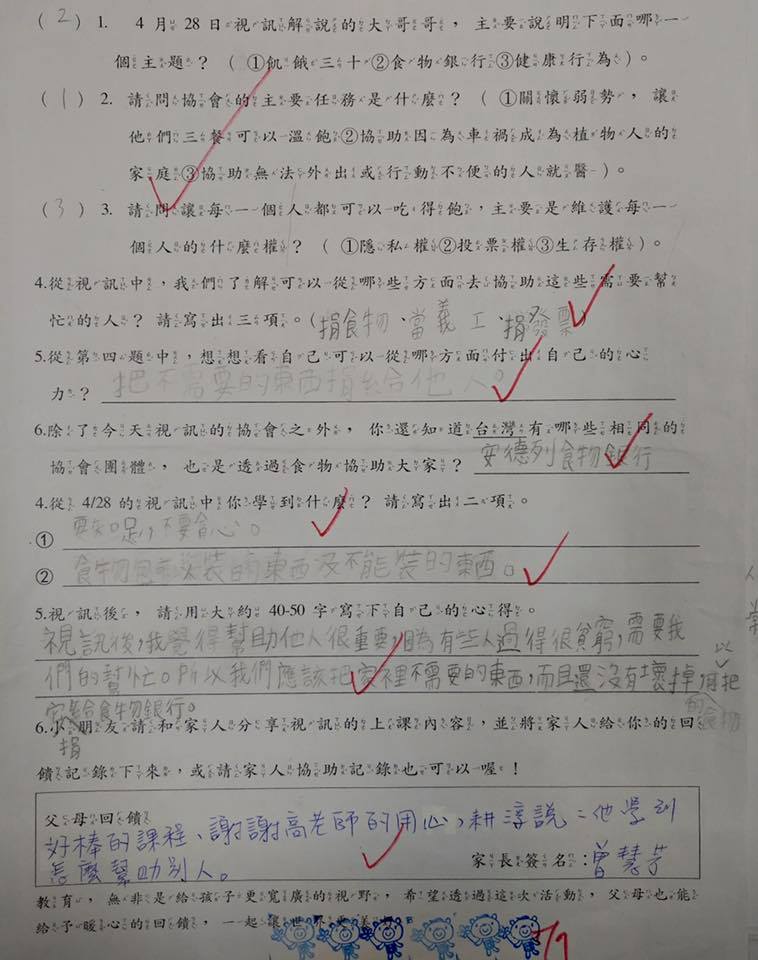 (2) 1. 4月28日視訊解說的大哥哥，主要說明下面哪一
個主題？(①飢餓三十②食物銀行③健康行為)。
(1) 2. 請問協會的主要任務是什麼？(①關懷弱勢，讓
他們三餐可以溫飽②協助因為車禍成為植物人的
家庭③協助無法外出或行動不便的人就醫)。
(3) 3. 請問讓每一個人都可以吃得飽，主要是維護每一
個人的什麼權？(①隱私權②投票權③生存權)。
4.從視訊中，我們了解可以從哪些方面去協助這些需要幫
忙的人？請寫出三項。(捐食物、當義工、捐發票)
5.從第四題中，想想看自己可以從哪方面付出自己的心
力？把不需要的東西捐給他人。
6.除了今天視訊的協會之外，你還知道台灣有哪些相同的
協會團體，也是透過食物協助大家？安德列食物銀行
4.從4/28的視訊中你學到什麼？請寫出二項。
① 要知足，不要貪心。
② 食物包裝的東西及不能裝的東西。
5.視訊後，請用大約40-50字寫下自己的心得。
視訊後，我覺得幫助他人很重要，因為有些人過得很貧窮，需要我
們的幫忙。所以我們應該把家裡不需要的東西，而且還沒有壞掉，可以把
它捐給食物銀行。
6.小朋友請和家人分享視訊的上課內容，並將家人給你的回
饋記錄下來，或請家人協助記錄也可以喔！
父母回饋
好棒的課程、謝謝高老師的用心，耕淳說：他學到
怎麼幫助別人。
家長簽名：曾慧芳
教育，無非是給孩子更寬廣的視野，希望透過這次活動，父母也能
給予暖心的回饋，一起讓世界